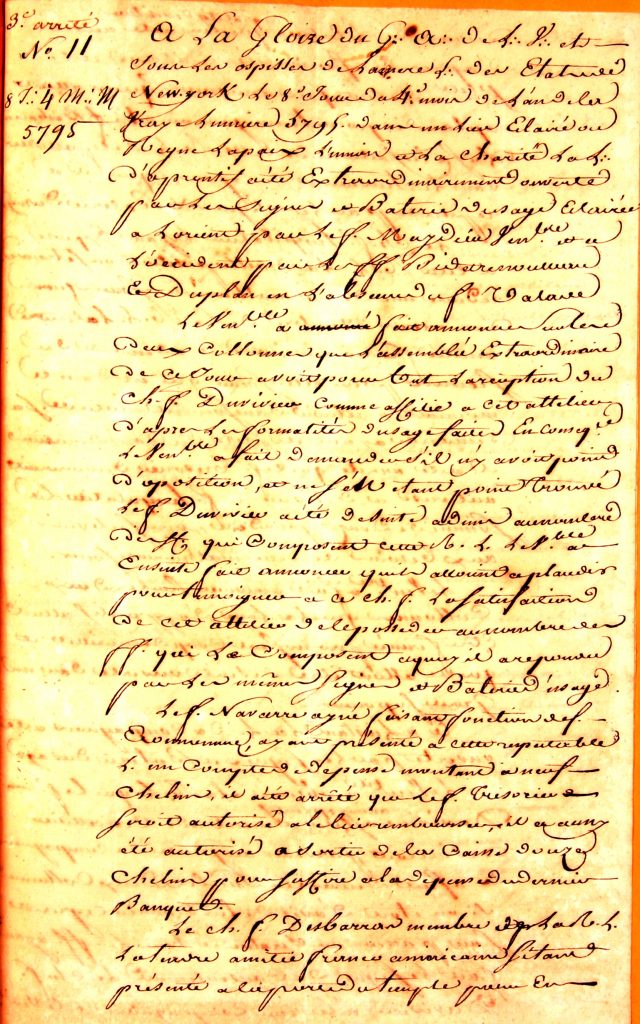 3.e arrété
No. 11
8 J:. 4 M:. M
5795
A La Gloire du G:. A:. de L:. U:. et
Sous Les ospisses de Lamere L:. des Etats de
New-york Le 8.e Jour du 4.e mois de L'an de La
Vraye Lumiere 5795. dans un Lieu Eclairé ou
Regne La paix L'union & La Charité La L:.
d'aprentif a été Extraordinairement ouverte
par Les Signes et Baterie dusage Eclairée
a Lorient par Le f. Vén.ble et a
L'occident par Les ff.
Et Duplan en L'absence du f. Valarée
Le Ven.ble a fait annoncer sur Les
deux Collonnes que L'assemblée Extraordinaire
de ce Jour avoit pour but La reception du
Ch. f. Duvivier comme affilié a cet attelier
d'apres Les formalités dusage faites En conseq.ce
Le Ven.ble a fait demander s'il n'y avoit point
d'oposition, et ne s'en étant point trouvé
Le f. Duvivier a été de suite admis au nombre
des ff. qui Composent cette R. L. Le V.ble a
Ensuite fait annoncer qu'ils alloient aplaudir
pour temoigner a ce Ch. f. La Satisfaction
de cet attelier de le posseder au nombre des
ff. qui Le Composent aquoy il a repondu
par Les mêmes Signes et Baterie d'usage.
Le f. Navarre ayné faisant fonction de f.
Econnomme, ayant présenté a cette respectable
L. un Compte de depense montant a neuf
Chelins, il a été arrêté que Le f. Tresorier
Seroit autorisé a le lui rembourser, il a aussy
été autorisé a sortir de La Caisse douze
Chelins pour suffire a la depense du dernier
Banquet.
Le Ch. f. Desbarras membre de La R. L.
La tendre amitié franco americaine s'étant
présenté a la porte du temple pour En